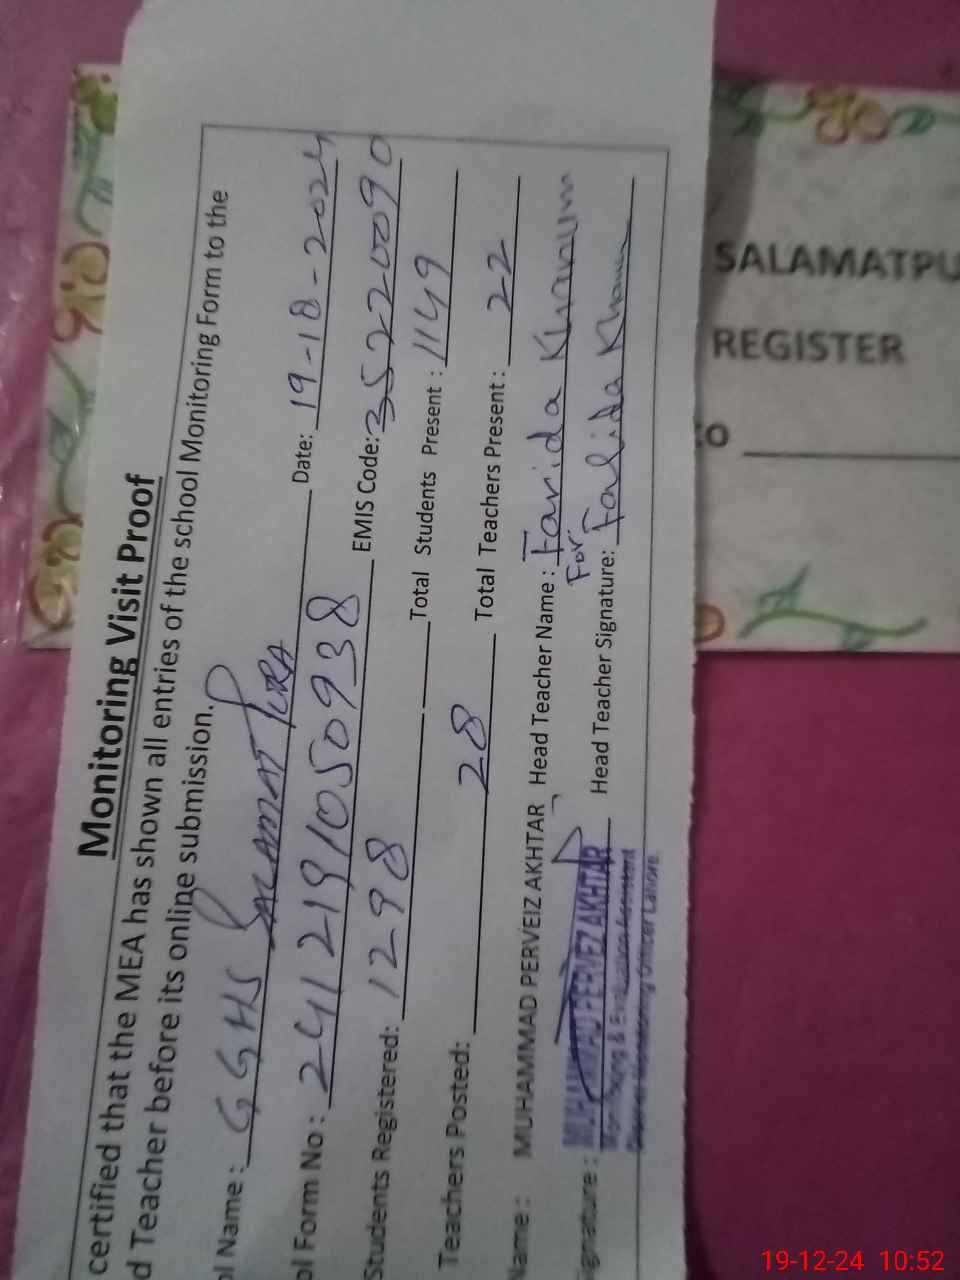 Monitoring Visit Proof
certified that the MEA has shown all entries of the school Monitoring Form to the
d Teacher before its online submission.
ol Name : GGHS SALAMAT PURA Date: 19-18-2024
ol Form No : 241219105 0938 EMIS Code: 35220090
Students Registered: 1298 Total Students Present : 1149
Teachers Posted: 28 Total Teachers Present : 22
Name : MUHAMMAD PERVEIZ AKHTAR Head Teacher Name : Farida Khanum
For
Signature : Head Teacher Signature: Farida Khanum
MUHAMMAD PERVEZ AKHTAR
Monitoring & Evaluation Assistant
District Monitoring Officer Lahore.
SALAMATPU
REGISTER
:O
19-12-24 10:52